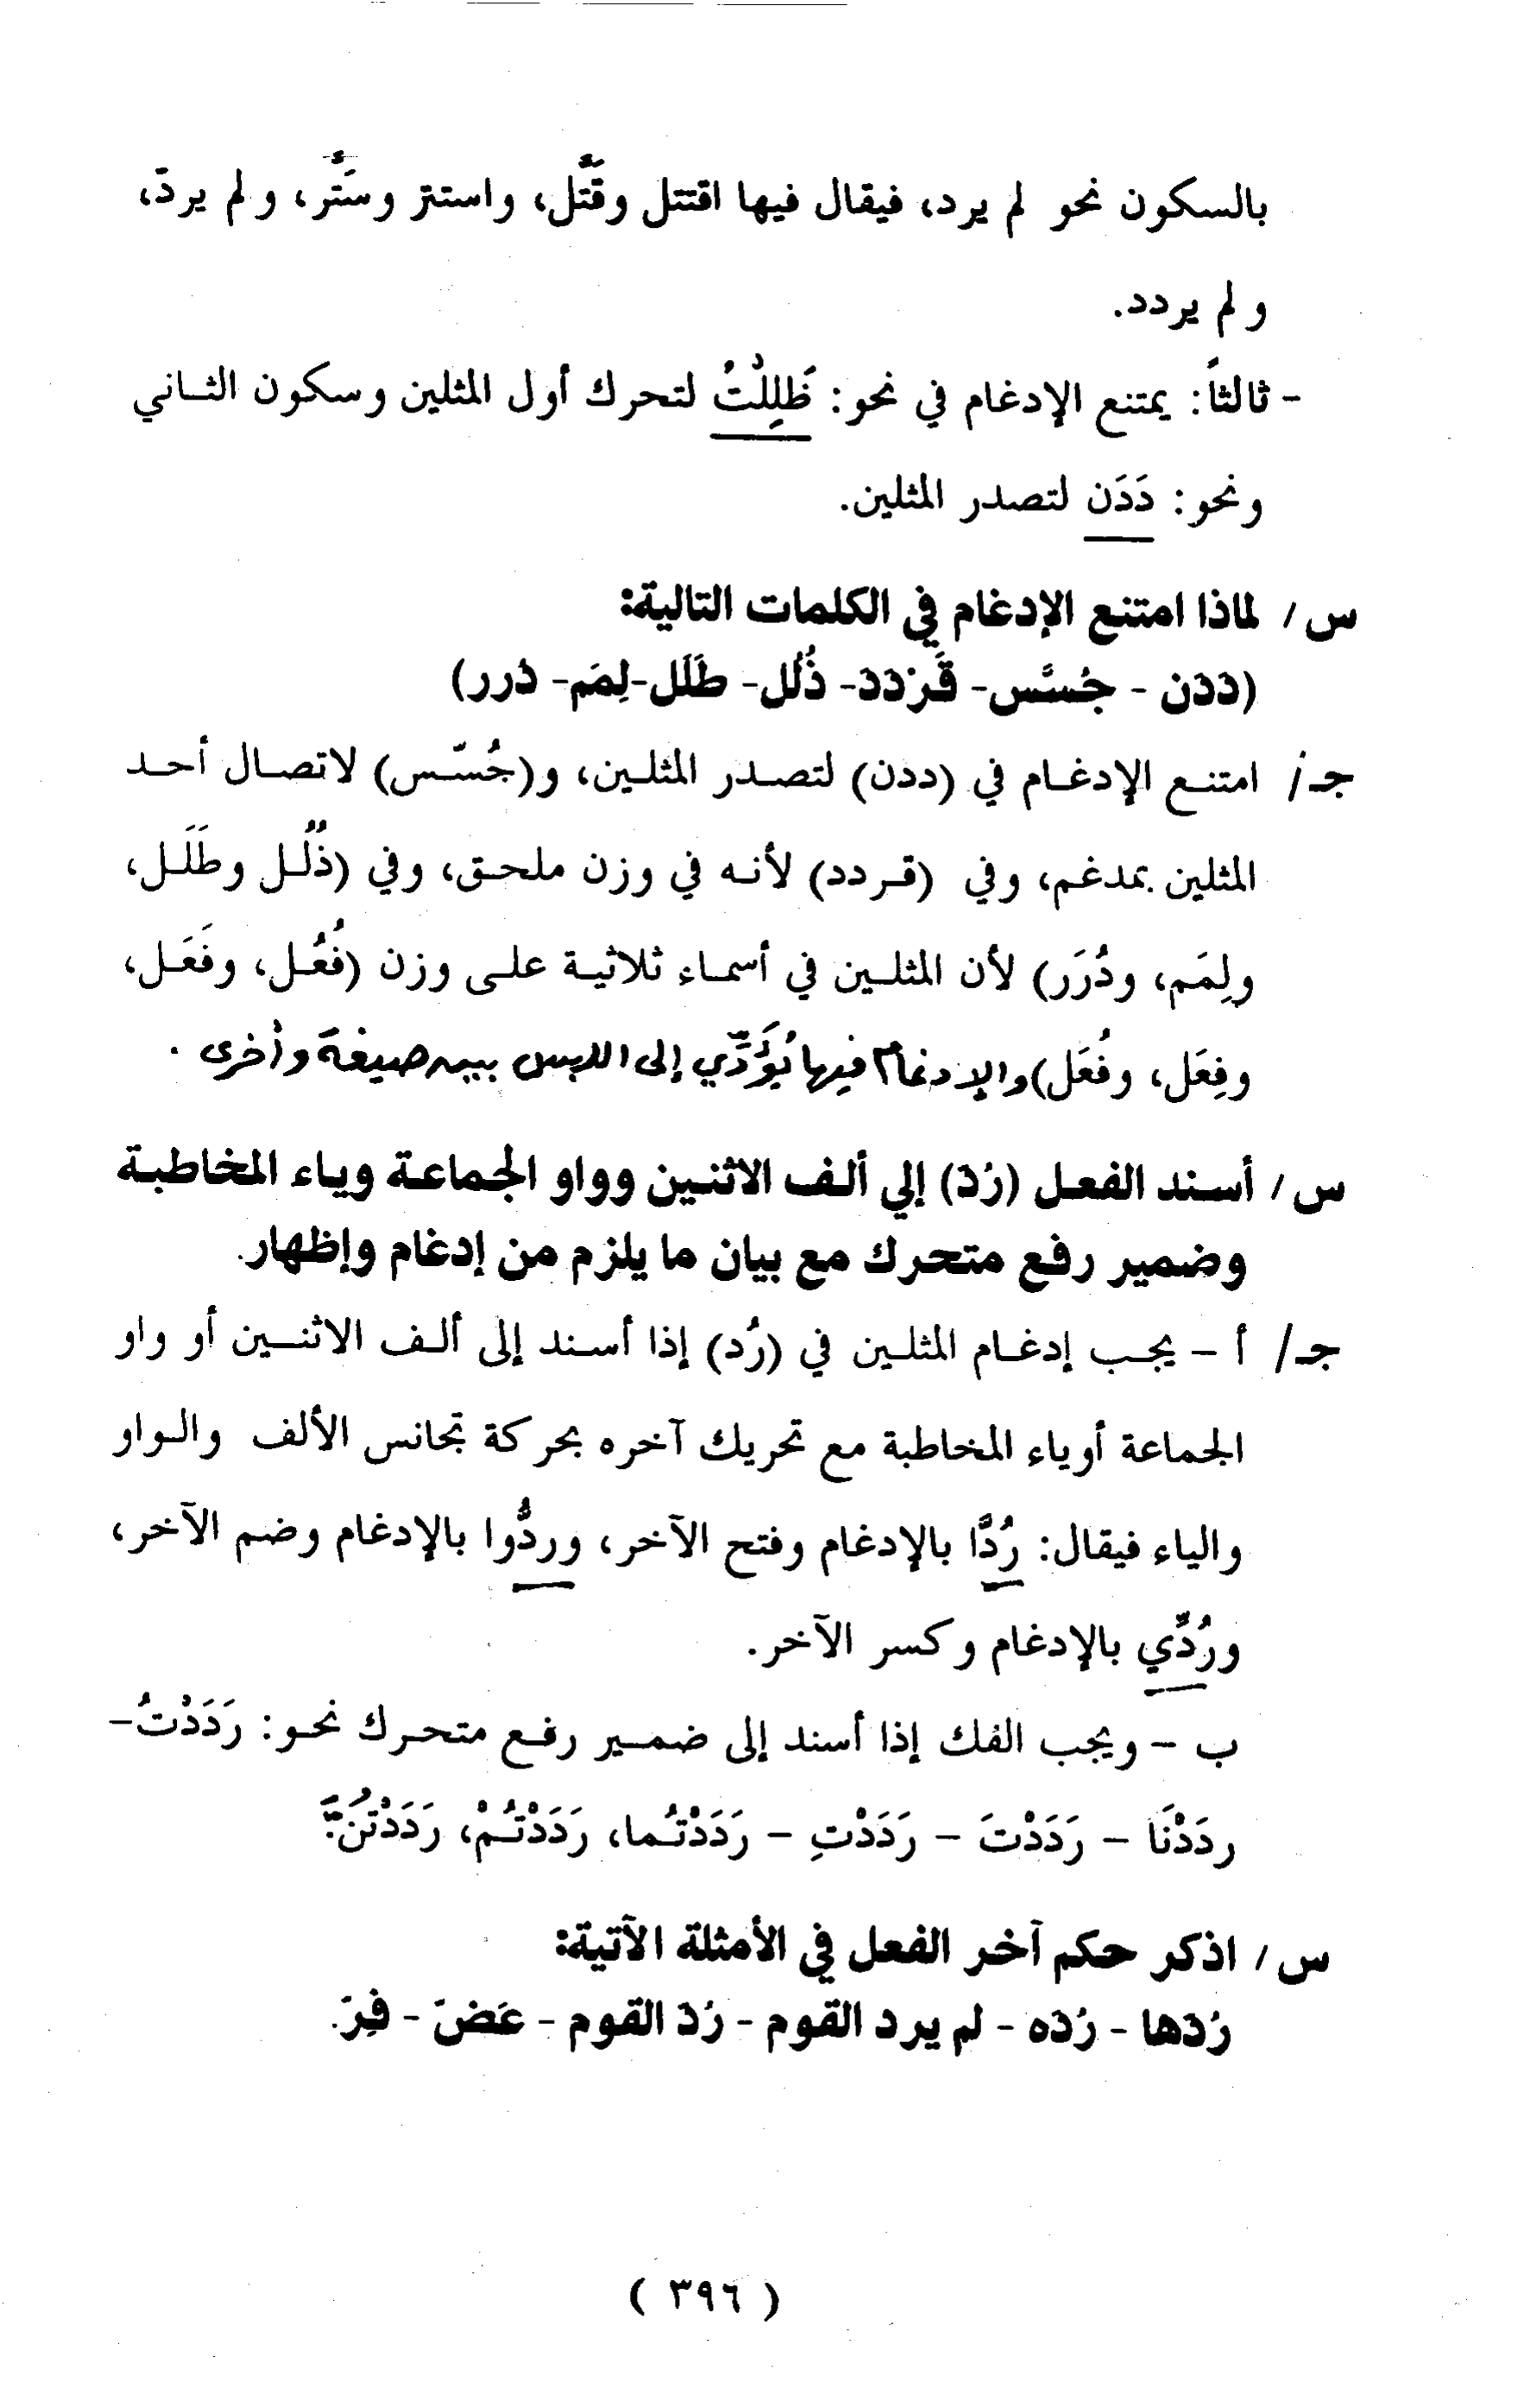 بالسكون نحو لم يرد، فيقال فيها اقتتل وقَتَّل، واستتر وسَتَّر، ولم يردّ،
ولم يردد.
- ثالثاً: يمتنع الإدغام في نحو: ظَلِلْتُ لتحرك أول المثلين وسكون الثاني
ونحو: دَدَن لتصدر المثلين.
س/ لماذا امتنع الإدغام في الكلمات التالية:
(ددن - جُسَّس- قَرْدد- ذُلُل- طَلَل-لِمَم- دُرر)
جـ/ امتنع الإدغام في (ددن) لتصدر المثلين، و(جُسّس) لاتصال أحد
المثلين بمدغم، وفي (قردد) لأنه في وزن ملحق، وفي (ذُلُل وطَلَل،
ولِمَم، ودُرَر) لأن المثلين في أسماء ثلاثية على وزن (فُعُل، وفَعَل،
وفِعَل، وفُعَل) والإدغام فيها يُؤَدِّي إلى اللبس بين صيغة وأخرى.
س/ أسند الفعل (رُدَ) إلي ألف الاثنين وواو الجماعة وياء المخاطبة
وضمير رفع متحرك مع بيان ما يلزم من إدغام وإظهار.
جـ/ أ - يجب إدغام المثلين في (رُد) إذا أسند إلى ألف الاثنين أو واو
الجماعة أوياء المخاطبة مع تحريك آخره بحركة تجانس الألف والواو
والياء فيقال: رُدَّا بالإدغام وفتح الآخر، وردُّوا بالإدغام وضم الآخر،
ورُدِّي بالإدغام وكسر الآخر.
ب - ويجب الفك إذا أسند إلى ضمير رفع متحرك نحو: رَدَدْتُ-
ردَدْنَا - رَدَدْتَ - رَدَدْتِ - رَدَدْتُما، رَدَدْتُمْ، رَدَدْتُنَّ.
س/ اذكر حكم آخر الفعل في الأمثلة الآتية:
رُدها - رُده - لم يرد القوم - رُد القوم - عَضَ - فِرَ.
( ٣٩٦ )